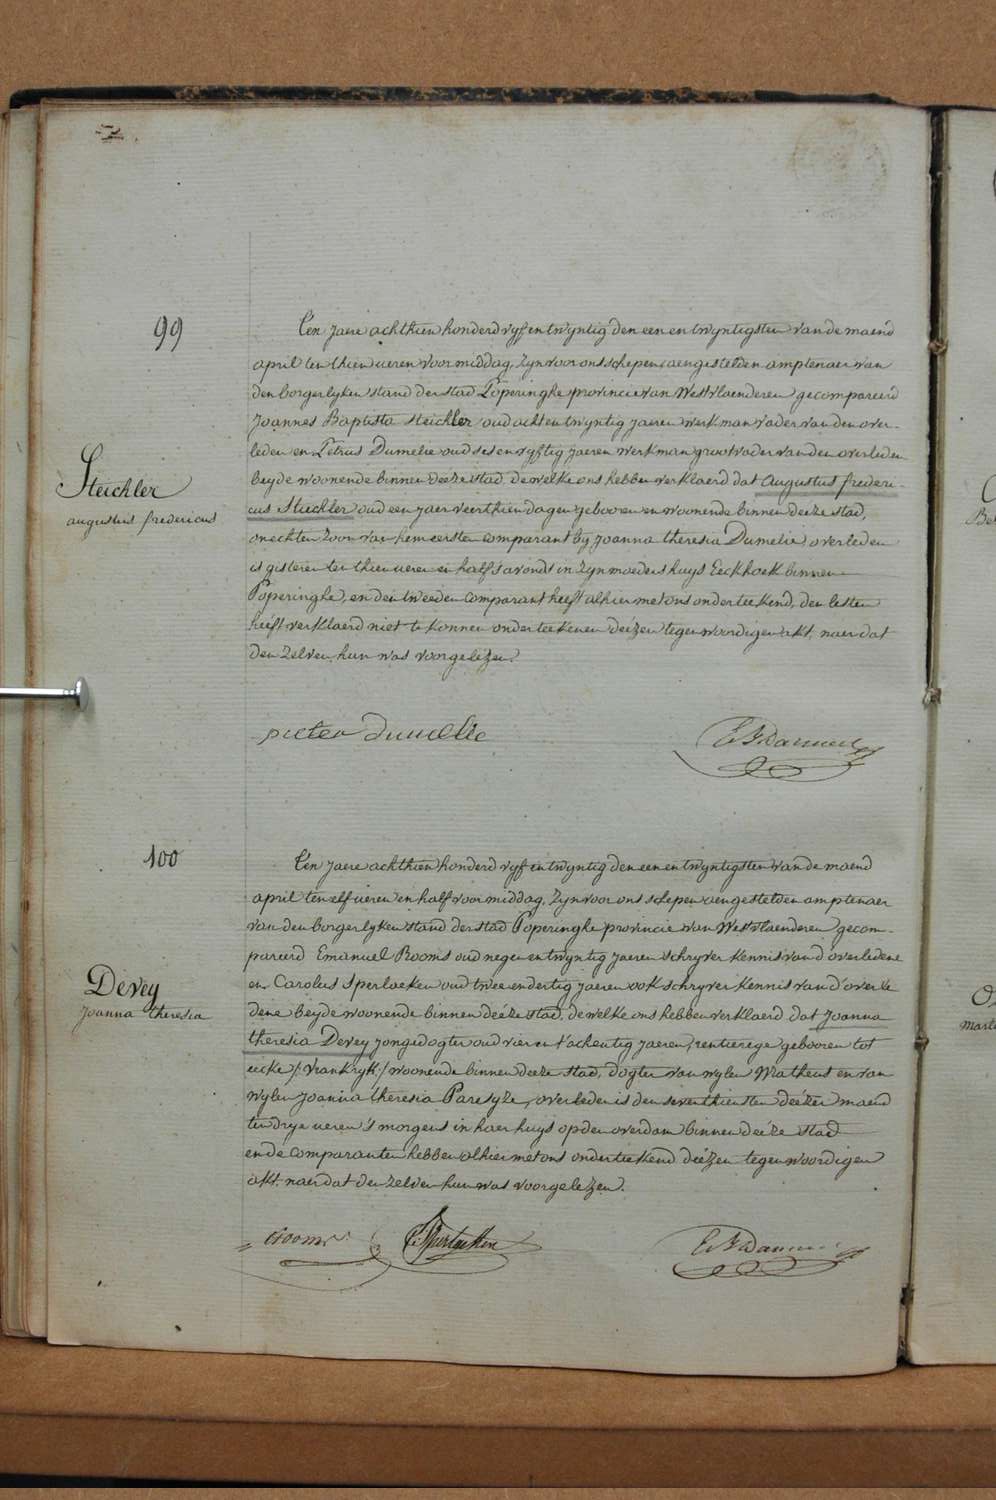 99
Steichler
augustus fredericus
Een jaere achthien honderd vyf en twyntig den een en twyntigsten van de maend
april ten thien ueren voor middag, zyn voor ons schepen aengestelden amptenaer van
den borgerlyken stand der stad Poperinghe provincie van Westvlaenderen gecompareerd
Joannes Baptista Steichler oud acht en twyntig jaeren werkman vader van den over-
leden en Petrus Dumelie oud ses en vyftig jaeren werkman grootvader van den overleden
beyde woonende binnen deeze stad, de welke ons hebben verklaerd dat augustus frederi-
cus Steichler oud een jaer veerthien dagen gebooren en woonende binnen deeze stad,
onechten zoon van hem eersten comparant by joanna theresia Dumelie, overleden
is gisteren ten thien ueren en half s'avonds in zyn moeders huys Eeckhoek binnen
Poperinghe, en den tweeden comparant heeft alhier met ons onderteekend, den eersten
heeft verklaerd niet te konnen onderteekenen deézen tegenwoordigen akt, naer dat
den zelven hun was voorgelezen.
pieter dumelie
100
Devey
joanna theresia
Een jaere achthien honderd vyf en twyntig den een en twyntigsten van de maend
april ten elf ueren en half voor middag, zyn voor ons schepen aengestelden amptenaer
van den borgerlyken stand der stad Poperinghe provincie van Westvlaenderen gecom-
pareerd Emanuel Rooms oud negen en twyntig jaeren schryver kennis van d'overledene
en Carolus Sperlaeken oud twee en dertig jaeren ook schryver kennis van d'overle
dene beyde woonende binnen deéze stad, de welke ons hebben verklaerd dat Joanna
theresia Devey jongedogter oud vier en t'achentig jaeren, rentierege gebooren tot
eecke /: Vrankryk :/ woonende binnen deeze stad, dogter van wylen Matheus en van
wylen joanna theresia Paresyze, overleden is den seventhiensten deézer maend
ten drye ueren 's morgens in haer huys op den overdam binnen deéze stad
en de comparanten hebben alhier met ons onderteekend deézen tegenwoordigen
akt. naer dat den zelven hun was voorgelezen.
Rooms
C. Sperlaeken